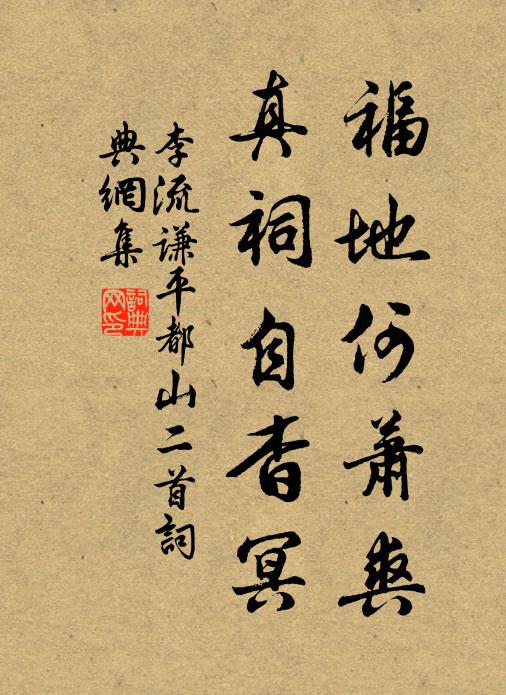 福地何蕭爽
真祠自杳冥
李流謙平都山二首詞
典網集
詞典
网印